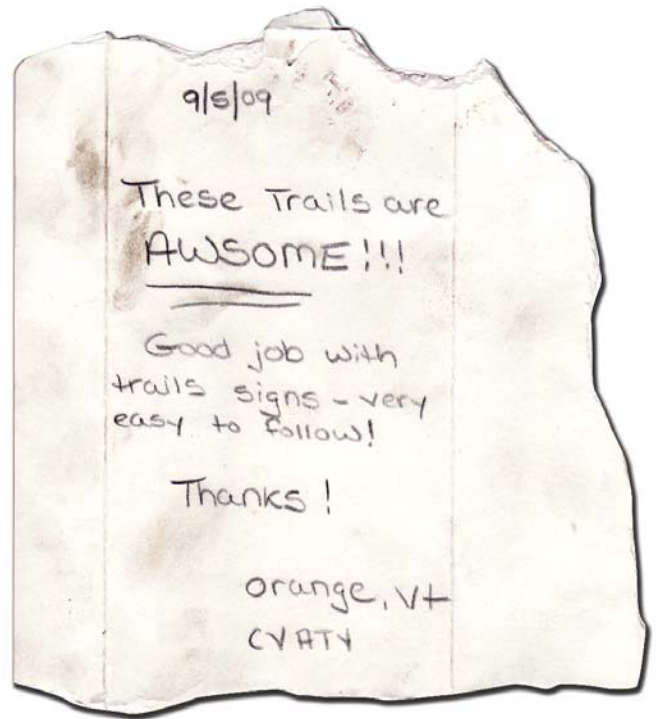 9/5/09
These Trails are
AWSOME!!!
Good job with
trails signs - very
easy to follow!
Thanks!
orange, Vt
CVATV